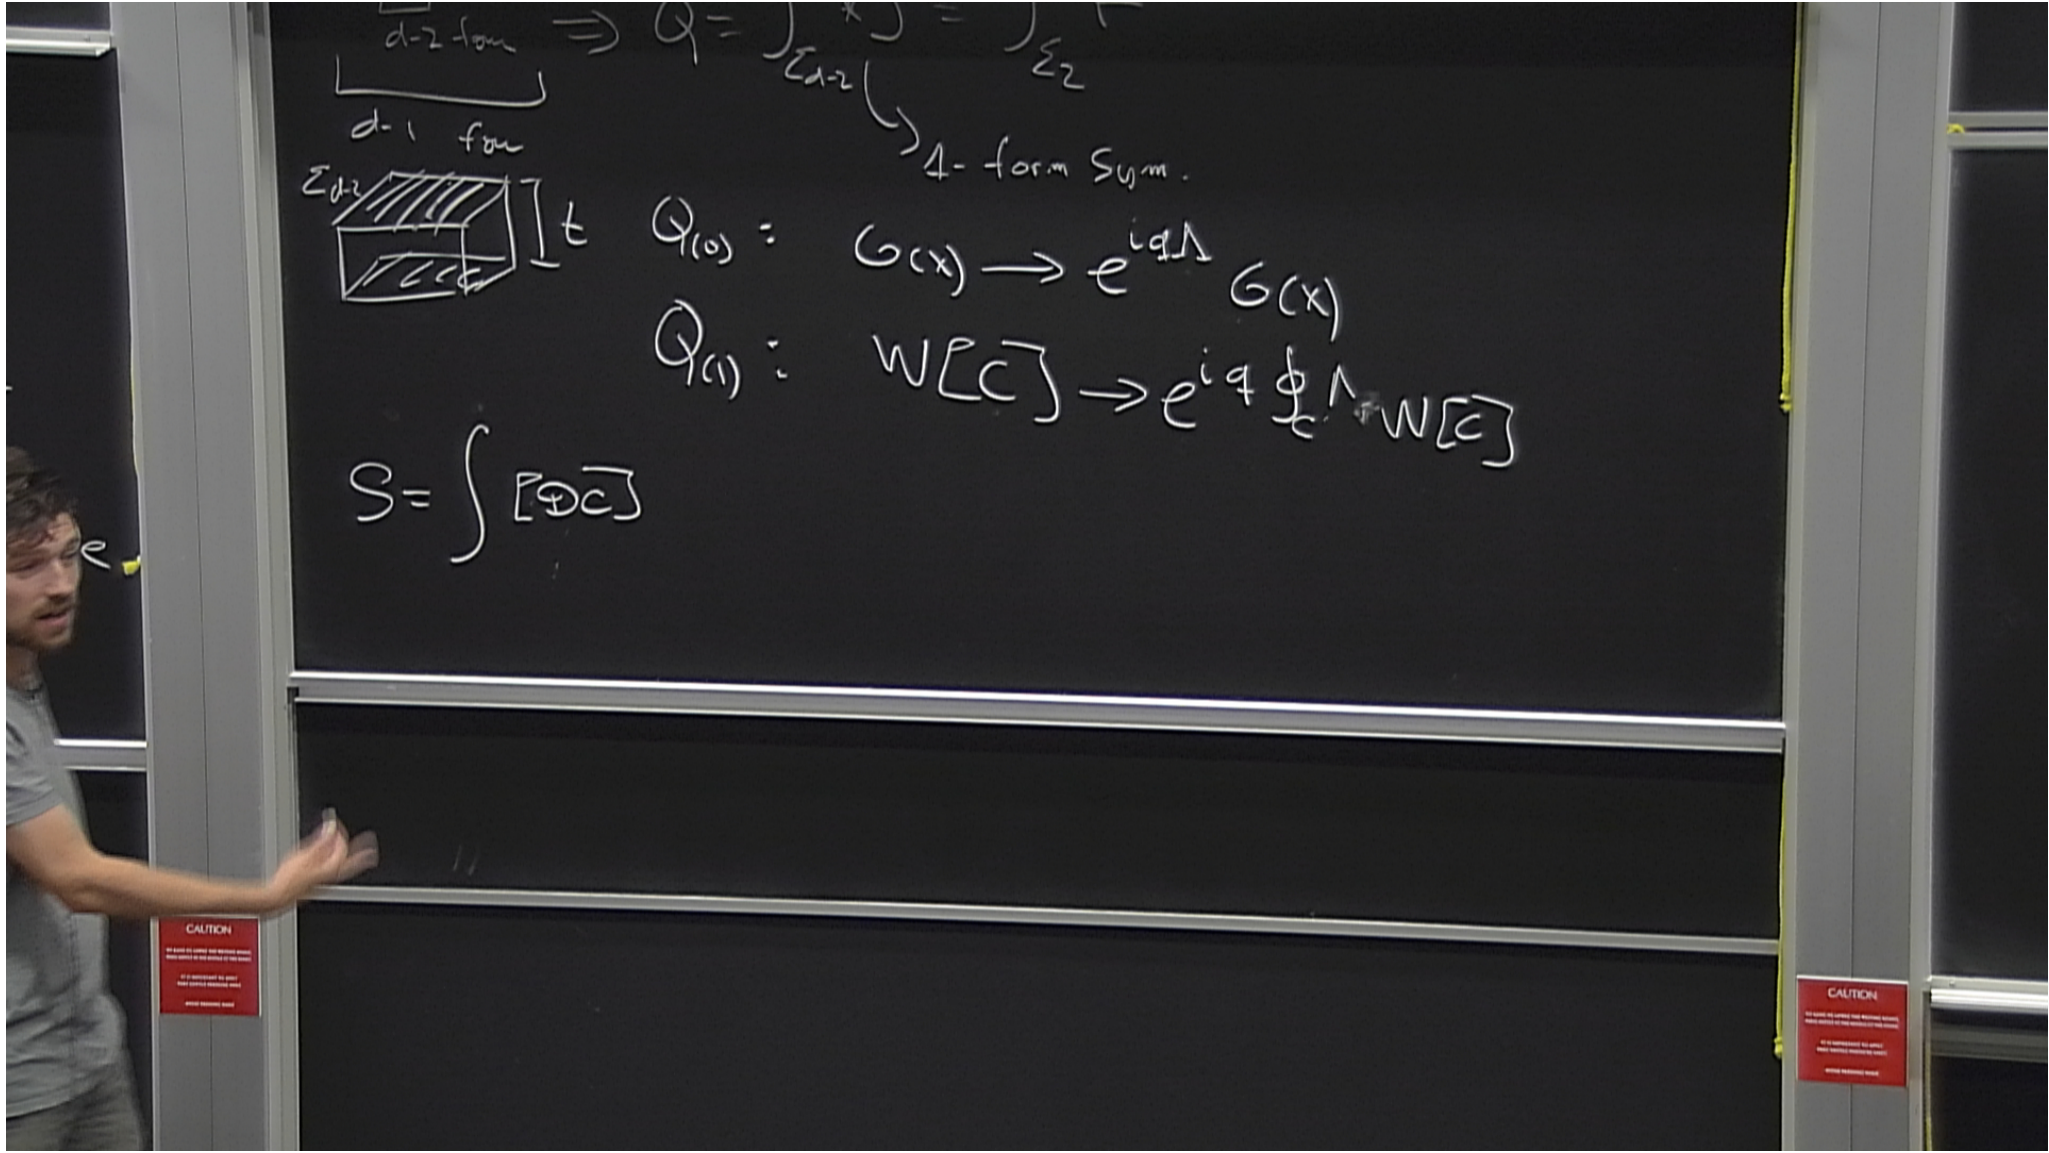 d-2 form ⇒ Q = ∫_{Σ_{d-2}} * J = ∫_{Σ_2} F
d-1 form
1-form Sym.
Σ_{d-2}
t
Q_{(0)} : O(x) → e^{iqΛ} O(x)
Q_{(1)} : W[C] → e^{iq∮_C Λ} W[C]
S = ∫ [DC]
e
CAUTION
CAUTION